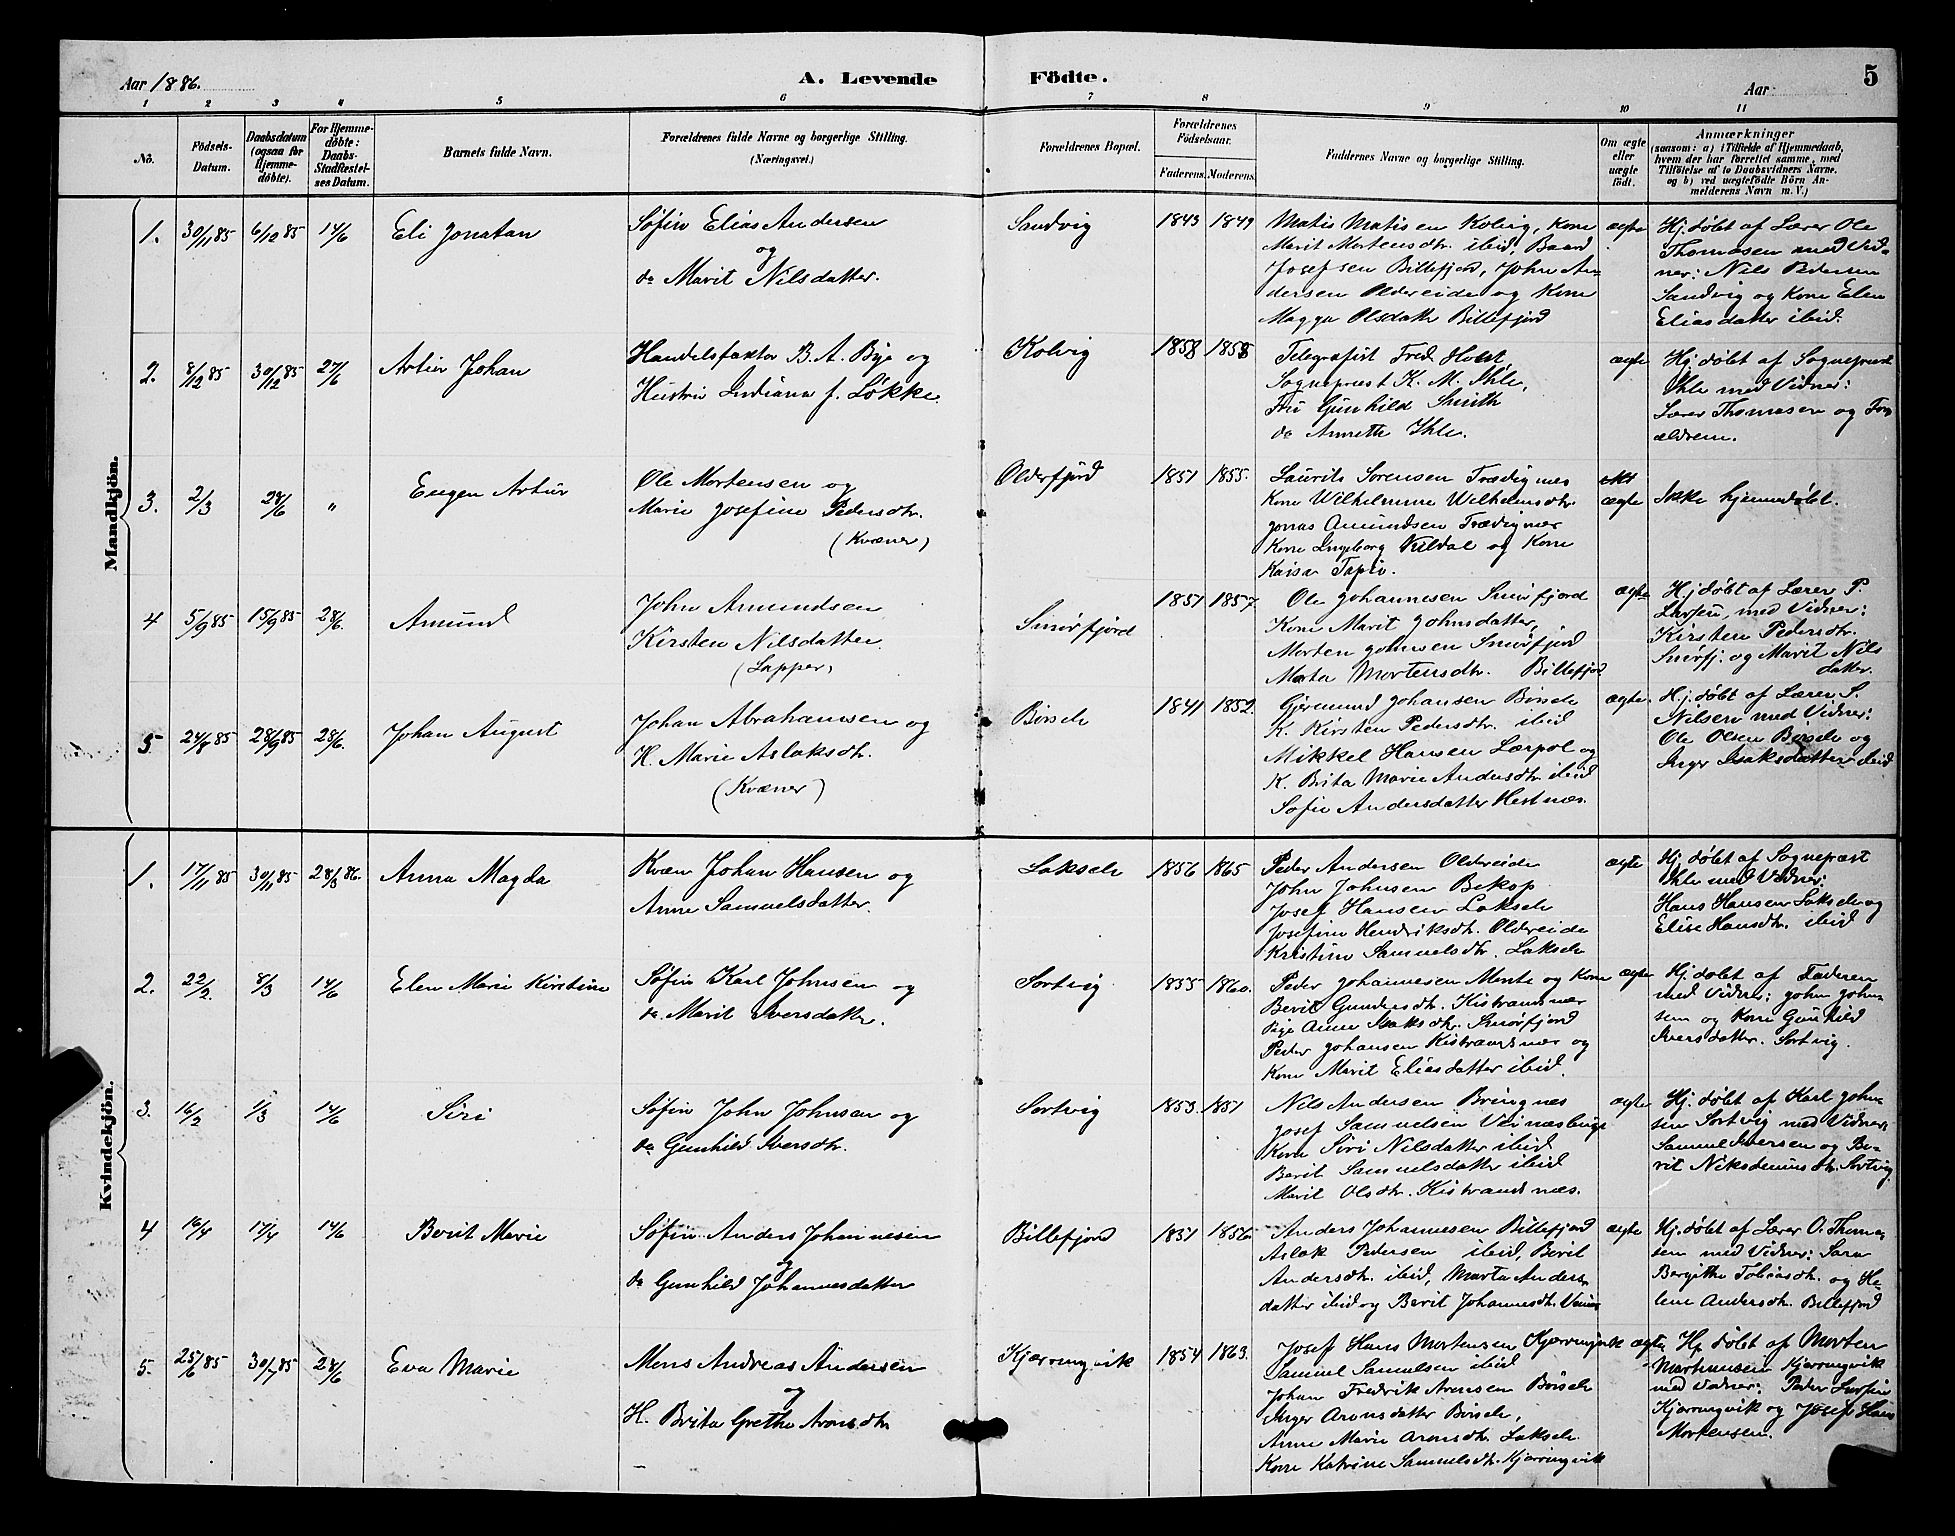 Aar 1886.
A. Levende
Födte.
Aar
5
1 2 3 4 5 6 7 8 9 10 11
No.
Födsels-
Datum.
Daabsdatum
(ogsaa for
Hjemme-
döbte).
For Hjemme-
döbte:
Daabs-
Stadfæstel-
ses Datum.
Barnets fulde Navn.
Forældrenes fulde Navne og borgerlige Stilling.
(Næringsvei.)
Forældrenes Bopæl.
Forældrenes
Födselsaar.
Faderens. Moderens.
Faddernes Navne og borgerlige Stilling.
Om ægte
eller
uægte
födt.
Anmærkninger
(saasom: a) i Tilfælde af Hjemmedaab,
hvem der har forrettet samme, med
Tilföielse af to Daabsvidners Navne,
og b) ved uægtefödte Börn An-
melderens Navn m. V.)
Mandkjön.
1. 30/11 85 6/12 85 14/6
Eli Jonatan
Søfin Elias Andersen
og
do Marit Nilsdatter.
Sandvig
1843 1849
Matis Matisen Kolvig, Kone
Marit Mortensdtr. ibid, Baard
Josefsen Billefjord, John An-
dersen Oldereide og Kone
Magga Olsdattr Billefjord
ægte
Hj. døbt af Lærer Ole
Thomasen med Vid-
ner: Nils Pedersen
Sandvig og Kone Elen
Eliasdatter ibid.
2. 8/12 85 30/12 85 27/6
Artur Johan
Handelsfaktor B. A. Bye og
Hustru Indiana f. Løkke.
Kolvig
1858 1858
Telegrafist Fred Holst
Sognepræst K. M. Ihle,
Fru Gunhild Smith
do Annette Ihle.
ægte
Hj. døbt af Sognepræst
Ihle med Vidner:
Lærer Thomasen og For
ældrene.
3. 2/3 28/6 "
Eugen Artur
Ole Mortensen og
Marie Josefine Pedersdtr.
(Kvæner)
Olderfjord
1851 1855.
Laurits Sørensen Trædignes
Kone Wilhelmine Wilhelmsdtr.
Jonas Amundsen Trædignes
Kone Ingeborg Kildal og Kone
Kaisa Tapio.
ægte
Ikke hjemmedøbt.
4 5/9 85 15/9 85 28/6.
Amund
John Amundsen
Kirsten Nilsdatter.
(Lapper)
Smørfjord
1851 1857.
Ole Johannesen Smørfjord
Kone Marit Johnsdatter,
Morten Jonnsen Smørfjord
Marta Mortensdtr. Billefjord
ægte
Hj. døbt af Lærer P.
Larsen, med Vidner:
Kirsten Pedersdtr.
Smørfj. og Marit Nils
datter.
5 24/8 85 28/9 85 28/6.
Johan August
Johan Abrahamsen og
H. Marie Aslaksdtr.
(Kvæner)
Børsele
1841 1852.
Gjermund Johansen Børsele
K. Kirsten Pedersdtr. ibid
Mikkel Hansen Lærpol og
K. Brita Marie Andersdtr. ibid
Sofie Andersdatter Hestnæs.
ægte.
Hj. døbt af Lærer S.
Nilsen med Vidner:
Ole Olsen Børsele og
Inger Isaksdatter ibid
Kvindekjön.
1. 17/11 85 30/11 85 28/3 86.
Anna Magda
Kvæn Johan Hansen og
Anne Samuelsdatter.
Laksele
1856 1865
Peder Andersen Oldereide
John Johnsen Bekop
Josef Hansen Laksele
Josefine Hendriksdtr. Oldereide
Kristine Samuelsdtr. Laksele
ægte
Hj. døbt af Sognepræst
Ihle med Vidner:
Hans Hansen Laksele og
Elise Hansdtr. ibid
2. 22/2. 8/3 14/6
Elen Marie Kirstine
Søfin Karl Johnsen og
do. Marit Iversdatter.
Sortvig
1855 1860.
Peder Johannesen Mente og Kone
Berit Gundersdtr. Kistrandnæs
Pige Anne Isaksdtr. Smørfjord
Peder Johansen Kistrandnæs og
Kone Marit Eliasdatter ibid.
ægte
Hj. døbt af Faderen
med Vidner: John John-
sen og Kone Gunhild
Iversdatter. Sortvig.
3. 16/2 1/3 14/6
Siri
Søfin John Johnsen og
do Gunhild Iversdtr.
Sortvig
1853. 1851
Nils Andersen Bringnes
Josef Samuelsen
Kone Siri Nilsdatter ibid
Berit Samuelsdatter ibid
Marit Olsdtr. Kistrandnæs.
ægte
Hj. døbt af Karl John-
sen Sortvig med Vidner:
Samuel Iversen og Be-
rit Sortvig
4 16/4 17/4 14/6
Berit Marie
Søfin Anders Johannesen
og
do Gunhild Johannesdatter
Billefjord
1851 1856
Anders Johannesen Billefjord
Aslak Pedersen ibid, Berit
Andersdtr. ibid, Marta Anders
datter ibid og Berit Johannesdtr.
ægte
Hj. døbt af Lærer O. Thoma-
sen med Vidner: Sara
Bergitte Tobiasdtr. og He-
lene Andersdtr. Billefjord
5. 25/6 85 30/7 85 28/6
Eva Marie
Mons Andreas Andersen
og
H. Brita Grethe Aronsdtr.
Kjærringvik
1854 1863.
Josef Hans Mortensen Kjærringvik
Samuel Samuelsen ibid
Johan Fredrik Aronsen Børsele
Inger Aronsdatter Børsele,
Anne Marie Aronsdtr. Laksele
Kone Katrine Samuelsdtr. Kjærringvik
ægte
Hj. døbt af Morten
Mortensen Kjærringvik
med Vidner: Peder
Kjærringvik og Josef Hans
Mortensen.